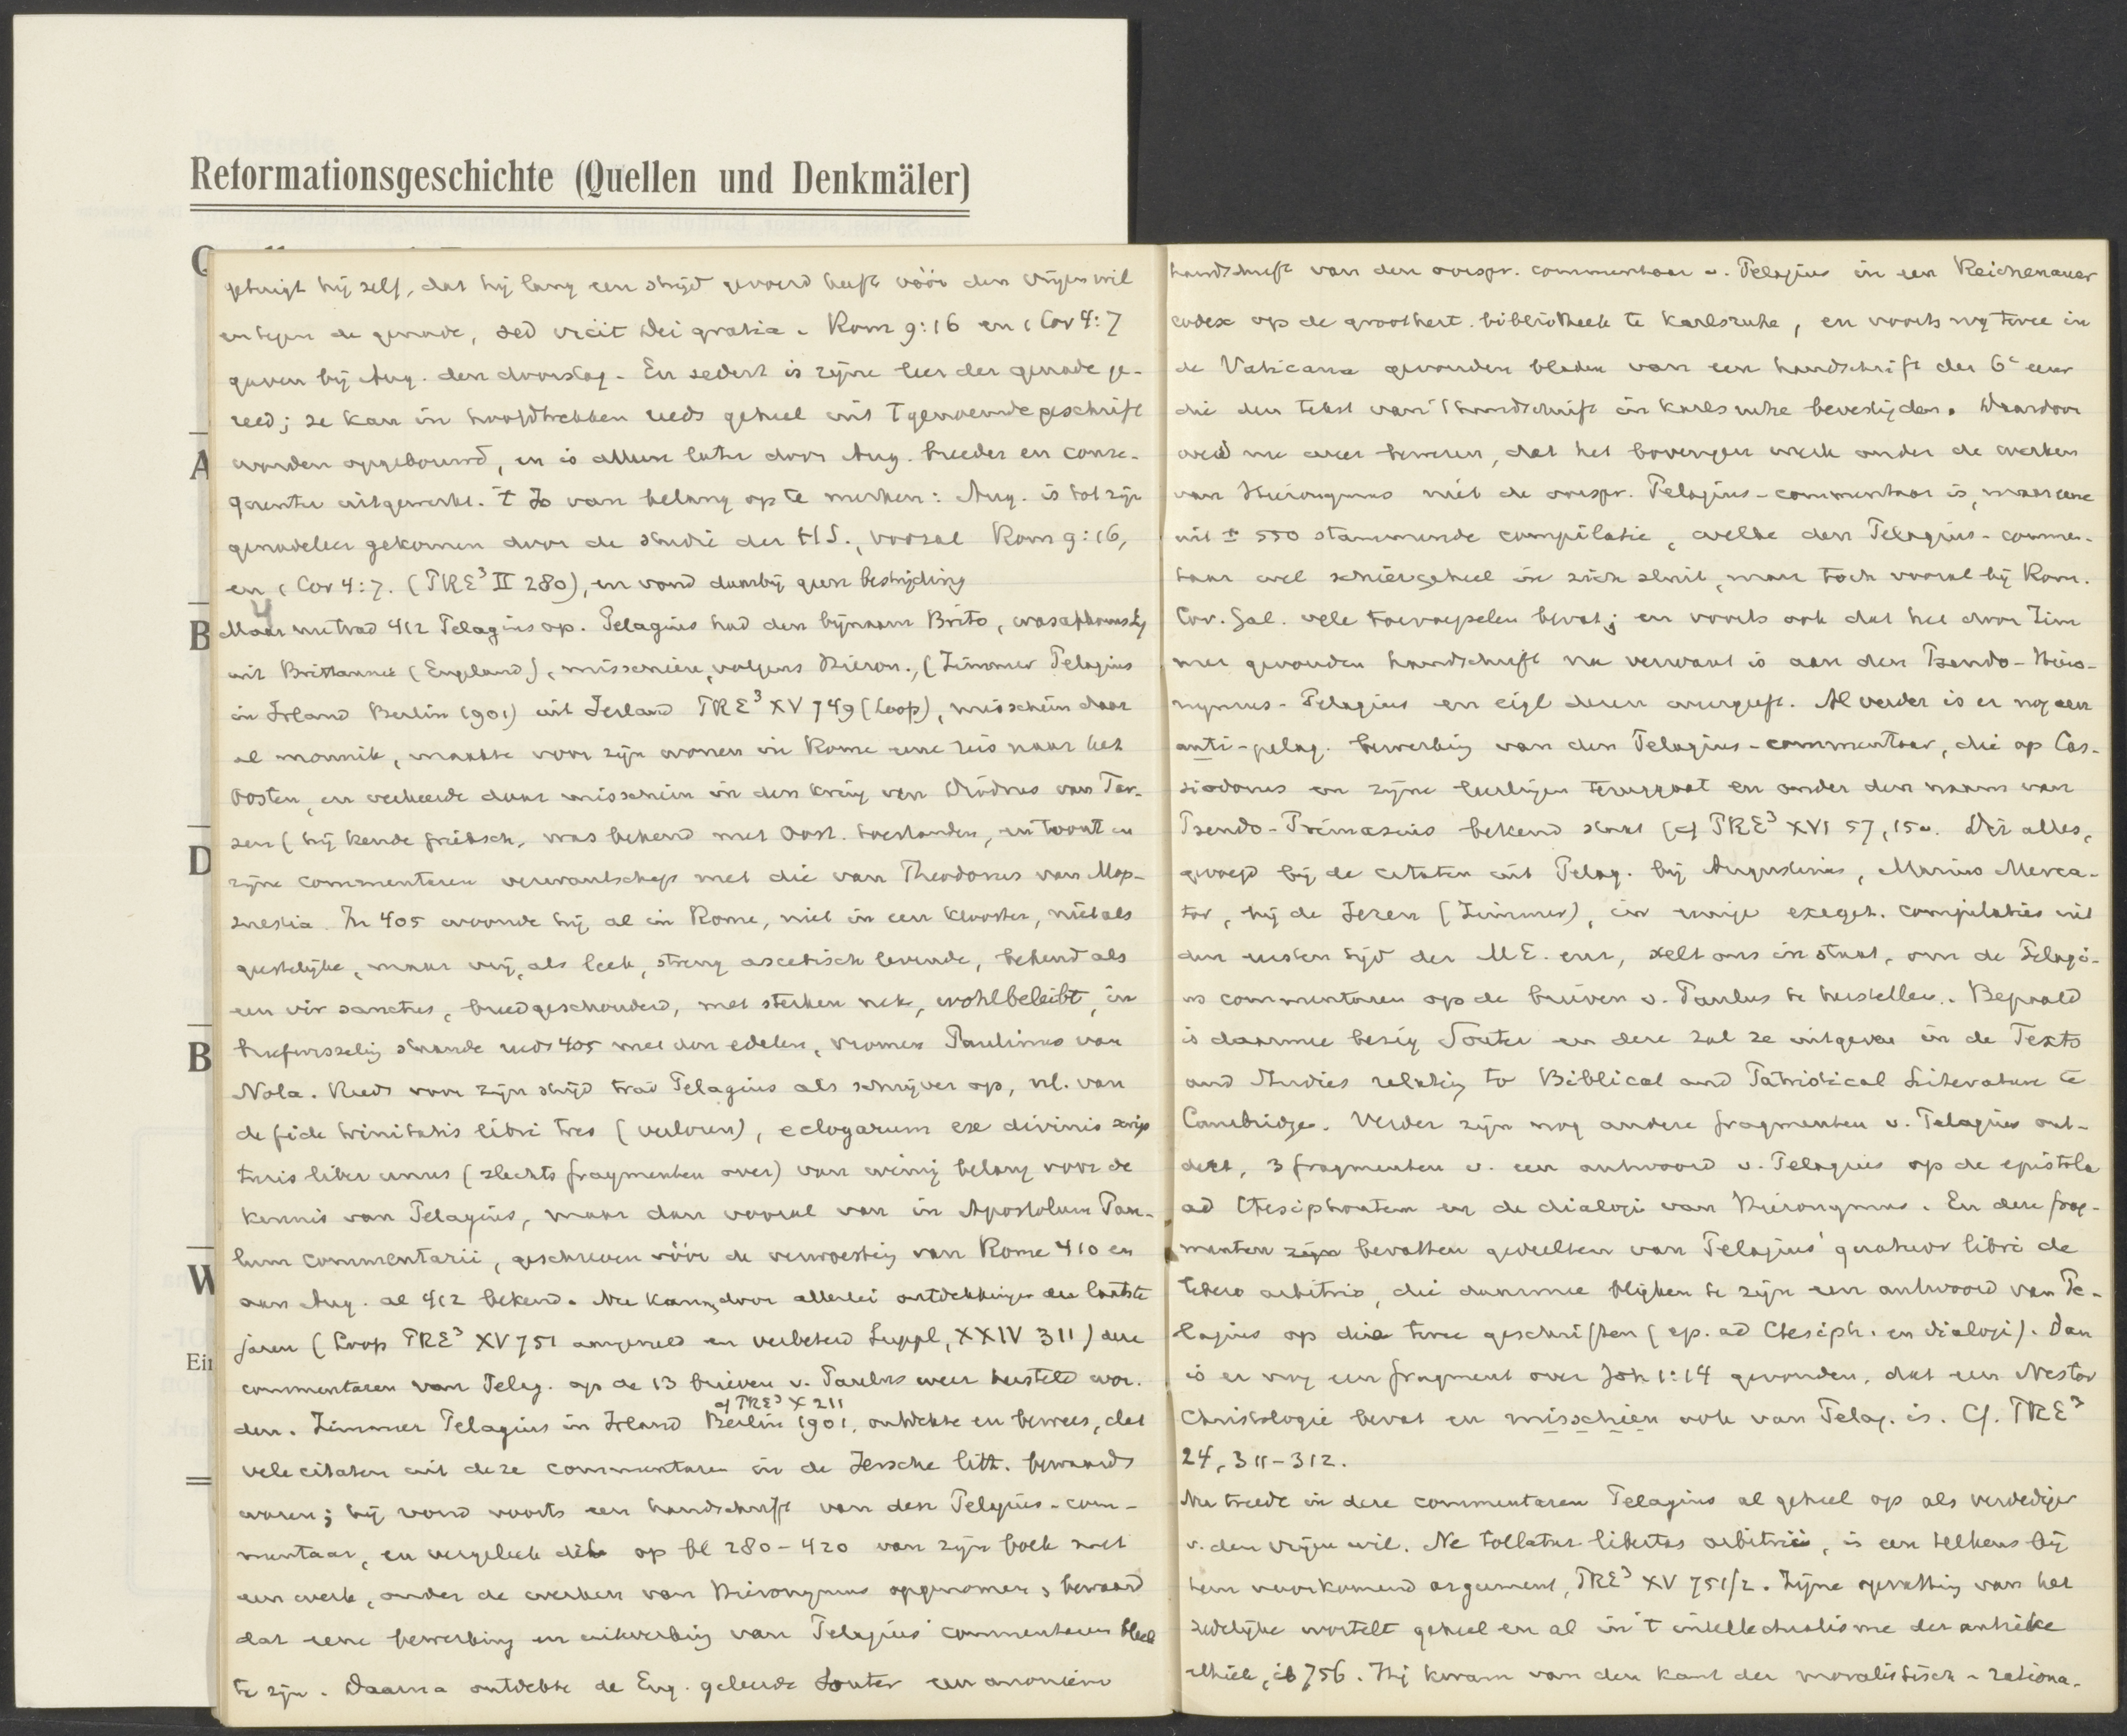 Reformationsgeschichte (Quellen und Denkmäler)
A
B
D
B
W
Ein
getuigt hij zelf, dat hij lang een strijd gevoerd heeft vóór den vrijen wil
en tegen de genade, sed vicit Dei gratia. Rom 9:16 en 1 Cor 4:7
gaven bij Aug. den doorslag. En sedert is zijne leer der genade ge-
reed; ze kan in hoofdtrekken reeds geheel uit 't genoemde geschrift
worden opgebouwd, en is alleen later door Aug. breeder en conse-
quenter uitgewerkt. 't Is van belang op te merken: Aug. is tot zijn
genadeleer gekomen door de studie der H.S., vooral Rom 9:16,
en 1 Cor 4:7. (PRE³ II 280), en vond daarbij geen bestrijding
4
Maar nu trad 412 Pelagius op. Pelagius had den bijnaam Brito, was afkomstig
uit Brittannië (Engeland), misschien, volgens Hieron., (Zimmer Pelagius
in Irland Berlin 1901) uit Ierland PRE³ XV 749 (Loofs), misschien daar
al monnik, maakte voor zijn wonen in Rome eene reis naar het
Oosten, en verkeerde daar misschien in den kring van Diodorus van Tar-
sen (hij kende Grieksch, was bekend met Oost. toestanden, en toont in
zijne commentaren verwantschap met die van Theodorus van Mop-
suestia. In 405 woonde hij al in Rome, niet in een klooster, niet als
geestelijke, maar vrij, als leek, streng ascetisch levende, bekend als
een vir sanctus, breedgeschouderd, met sterken nek, wohlbeleibt, in
briefwisseling staande reeds 405 met den edelen, vromen Paulinus van
Nola. Reeds voor zijn strijd trad Pelagius als schrijver op, nl. van
de fide trinitatis libri tres (verloren), eclogarum ex divinis scrip
turis liber unus (slechts fragmenten over) van weinig belang voor de
kennis van Pelagius, maar dan vooral van in Apostolum Pau-
lum commentarii, geschreven vóór de verwoesting van Rome 410 en
aan Aug. al 412 bekend. Nu kan, door allerlei ontdekkingen der laatste
jaren (Loofs PRE³ XV 751 aangevuld en verbeterd Suppl, XXIV 311) deze
commentaren van Pelag. op de 13 brieven v. Paulus weer hersteld wor-
cf PRE³ X 211
den. Zimmer Pelagius in Irland Berlin 1901, ontdekte en bewees, dat
vele citaten uit deze commentaren in de Iersche litt. bewaard
waren; hij vond voorts een handschrift van den Pelagius-com-
mentaar, en vergeleek dit op bl 280-420 van zijn boek met
een werk, onder de werken van Hieronymus opgenomen, bewaard
dat eene bewerking en uitwerking van Pelagius' commentaren bleek
te zijn. Daarna ontdekte de Eng. geleerde Souter een anoniem
handschrift van den oorspr. commentaar v. Pelagius in een Reichenauer
codex op de groothert. bibliotheek te Karlsruhe, en voorts nog twee in
de Vaticana gevonden bladen van een handschrift der 6e eeuw
die den tekst van 't handschrift in Karlsruhe bevestigden. Daardoor
werd nu weer bewezen, dat het bovengen werk onder de werken
van Hieronymus niet de oorspr. Pelagius-commentaar is, maar eene
uit ± 550 stammende compilatie, welke den Pelagius-commen-
taar wel schier geheel in zich sluit, maar toch vooral bij Rom.
Cor. Gal. vele toevoegselen bevat; en voorts ook dat het door Zim
mer gevonden handschrift na verwant is aan den Pseudo-Hiero-
nymus-Pelagius en eigl dezen weergeeft. Al verder is er nog een
anti-pelag. bewerking van den Pelagius-commentaar, die op Cas-
siodorus en zijne leerlingen teruggaat en onder den naam van
Pseudo-Primasius bekend staat (cf PRE³ XVI 57, 15v. Dit alles,
gevoegd bij de citaten uit Pelag. bij Augustinus, Marius Merca-
tor, bij de Ieren (Zimmer), in eenige exeget. compilaties uit
den eersten tijd der M.E. enz, stelt ons in staat, om de Pelagi-
us commentaren op de brieven v. Paulus te herstellen. Bepaald
is daarmee bezig Souter en deze zal ze uitgeven in de Texts
and Studies relating to Biblical and Patristical Literature te
Cambridge. Verder zijn nog andere fragmenten v. Pelagius ont-
dekt, 3 fragmenten v. een antwoord v. Pelagius op de epistola
ad Ctesiphontem en de dialogi van Hieronymus. En deze frag-
menten zijn bevatten gedeelten van Pelagius' quatuor libri de
libero arbitrio, die daarmee blijken te zijn een antwoord van Pe-
lagius op die twee geschriften (ep. ad Ctesiph. en dialogi). Dan
is er nog een fragment over Joh 1:14 gevonden, dat een Nestor
Christologie bevat en misschien ook van Pelag. is. Cf. PRE³
24, 311-312.
Nu treedt in deze commentaren Pelagius al geheel op als verdediger
v. den vrijen wil. Ne tollatur libertas arbitrii, is een telkens bij
hem voorkomend argument, PRE³ XV 751/2. Zijne opvatting van het
zedelijke wortelt geheel en al in 't intellectualisme der antieke
ethiek, ib 756. Hij kwam van den kant der moralistisch-rationa-